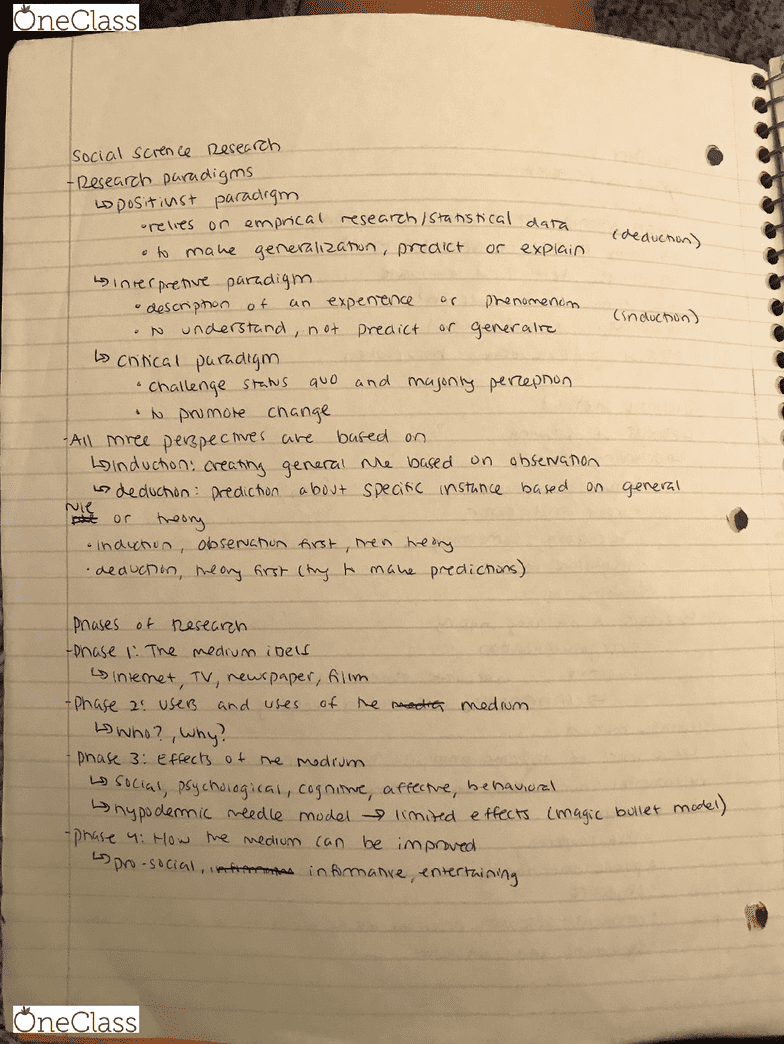 OneClass
Social Science Research
-Research paradigms
↳positivist paradigm
•relies on emprical research/statistical data
(deduction)
• to make generalization, predict or explain
↳interpretive paradigm
•description of an experience or phenomenom
(induction)
• to understand, not predict or generalize
↳ critical paradigm
• challenge status quo and majority perception
• to promote change
-All three perspectives are based on
↳induction: creating general rule based on observation
↳ deduction: prediction about specific instance based on general
rule or theory
• induction, observation first, then theory
• deduction, theory first (try to make predictions)
Phases of Research
-Phase 1: The medium itself
↳ Internet, TV, newspaper, film
-Phase 2: users and uses of the media medium
↳ Who?, Why?
- Phase 3: Effects of the medium
↳ social, psychological, cognitive, affective, behavioral
↳ hypodermic needle model → limited effects (magic bullet model)
-Phase 4: How the medium can be improved
↳ pro-social, informative, entertaining
OneClass